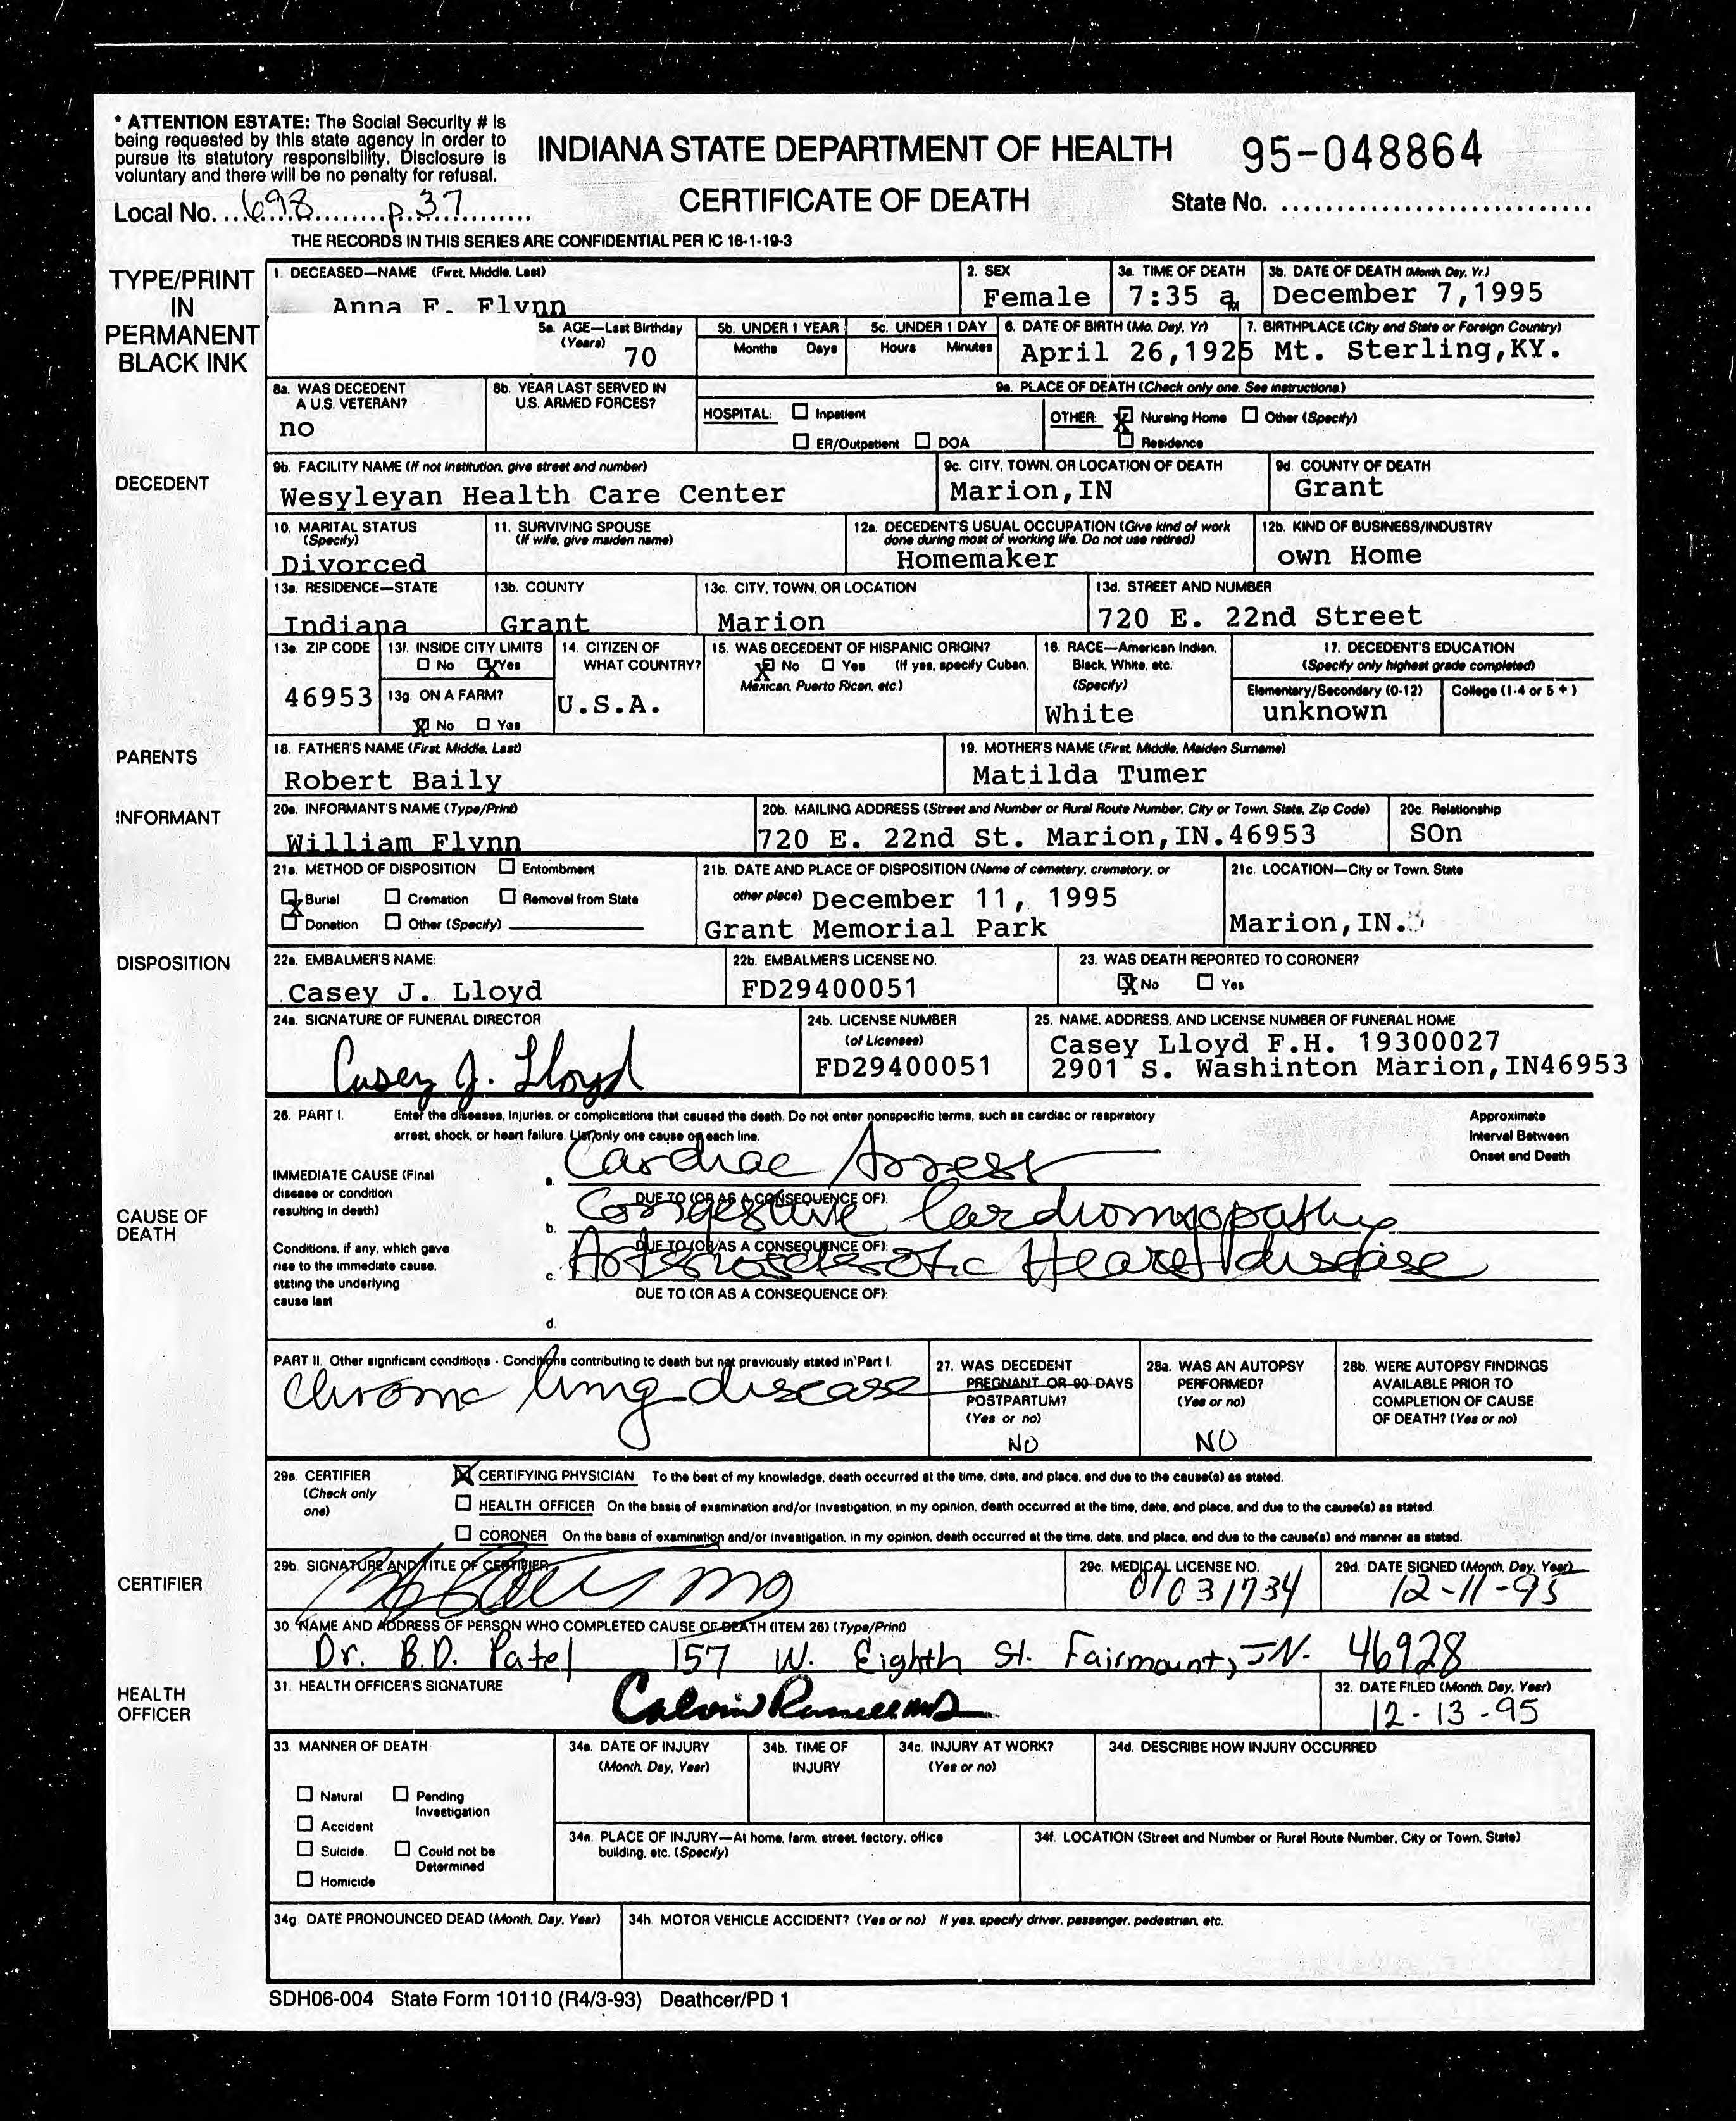 * ATTENTION ESTATE: The Social Security # is
being requested by this state agency in order to
pursue its statutory responsibility. Disclosure is
voluntary and there will be no penalty for refusal.
INDIANA STATE DEPARTMENT OF HEALTH
95-048864
CERTIFICATE OF DEATH
State No.
Local No. 698 p.37
THE RECORDS IN THIS SERIES ARE CONFIDENTIAL PER IC 16-1-19-3
TYPE/PRINT
IN
PERMANENT
BLACK INK
1. DECEASED—NAME (First, Middle, Last)
Anna F. Flynn
2. SEX
Female
3a. TIME OF DEATH
7:35 a M
3b. DATE OF DEATH (Month, Day, Yr.)
December 7,1995
5a. AGE—Last Birthday
(Years)
70
5b. UNDER 1 YEAR
Months Days
5c. UNDER 1 DAY
Hours Minutes
6. DATE OF BIRTH (Mo, Day, Yr)
April 26,1925
7. BIRTHPLACE (City and State or Foreign Country)
Mt. Sterling,KY.
DECEDENT
8a. WAS DECEDENT
A U.S. VETERAN?
no
8b. YEAR LAST SERVED IN
U.S. ARMED FORCES?
9a. PLACE OF DEATH (Check only one. See instructions.)
HOSPITAL: Inpatient
ER/Outpatient DOA
OTHER: X Nursing Home Other (Specify)
Residence
9b. FACILITY NAME (If not institution, give street and number)
Wesyleyan Health Care Center
9c. CITY, TOWN, OR LOCATION OF DEATH
Marion,IN
9d. COUNTY OF DEATH
Grant
10. MARITAL STATUS
(Specify)
Divorced
11. SURVIVING SPOUSE
(If wife, give maiden name)
12a. DECEDENT'S USUAL OCCUPATION (Give kind of work
done during most of working life. Do not use retired)
Homemaker
12b. KIND OF BUSINESS/INDUSTRY
own Home
13a. RESIDENCE—STATE
Indiana
13b. COUNTY
Grant
13c. CITY, TOWN, OR LOCATION
Marion
13d. STREET AND NUMBER
720 E. 22nd Street
13e. ZIP CODE
46953
13f. INSIDE CITY LIMITS
No X Yes
13g. ON A FARM?
X No Yes
14. CITIZEN OF
WHAT COUNTRY?
U.S.A.
15. WAS DECEDENT OF HISPANIC ORIGIN?
X No Yes (If yes, specify Cuban,
Mexican, Puerto Rican, etc.)
16. RACE—American Indian,
Black, White, etc.
(Specify)
White
17. DECEDENT'S EDUCATION
(Specify only highest grade completed)
Elementary/Secondary (0-12)
unknown
College (1-4 or 5 + )
PARENTS
18. FATHER'S NAME (First, Middle, Last)
Robert Baily
19. MOTHER'S NAME (First, Middle, Maiden Surname)
Matilda Tumer
INFORMANT
20a. INFORMANT'S NAME (Type/Print)
William Flynn
20b. MAILING ADDRESS (Street and Number or Rural Route Number, City or Town, State, Zip Code)
720 E. 22nd St. Marion,IN.46953
20c. Relationship
SOn
DISPOSITION
21a. METHOD OF DISPOSITION Entombment
X Burial Cremation Removal from State
Donation Other (Specify)
21b. DATE AND PLACE OF DISPOSITION (Name of cemetery, crematory, or
other place) December 11, 1995
Grant Memorial Park
21c. LOCATION—City or Town, State
Marion,IN.
22a. EMBALMER'S NAME:
Casey J. Lloyd
22b. EMBALMER'S LICENSE NO.
FD29400051
23. WAS DEATH REPORTED TO CORONER?
X No Yes
24a. SIGNATURE OF FUNERAL DIRECTOR
Casey J. Lloyd
24b. LICENSE NUMBER
(of Licensee)
FD29400051
25. NAME, ADDRESS, AND LICENSE NUMBER OF FUNERAL HOME
Casey Lloyd F.H. 19300027
2901 S. Washinton Marion,IN46953
CAUSE OF
DEATH
26. PART I. Enter the diseases, injuries, or complications that caused the death. Do not enter nonspecific terms, such as cardiac or respiratory
arrest, shock, or heart failure. List only one cause on each line.
Approximate
Interval Between
Onset and Death
IMMEDIATE CAUSE (Final
disease or condition
resulting in death)
a. Cardiac Arrest
DUE TO (OR AS A CONSEQUENCE OF):
b. Congestive Cardiomyopathy
DUE TO (OR AS A CONSEQUENCE OF):
Conditions, if any, which gave
rise to the immediate cause,
stating the underlying
cause last
c. Arteriosclerotic Heart disease
DUE TO (OR AS A CONSEQUENCE OF):
d.
PART II. Other significant conditions - Conditions contributing to death but not previously stated in Part I.
Chronic lung disease
27. WAS DECEDENT
PREGNANT OR 90 DAYS
POSTPARTUM?
(Yes or no)
NO
28a. WAS AN AUTOPSY
PERFORMED?
(Yes or no)
NO
28b. WERE AUTOPSY FINDINGS
AVAILABLE PRIOR TO
COMPLETION OF CAUSE
OF DEATH? (Yes or no)
CERTIFIER
29a. CERTIFIER
(Check only
one)
X CERTIFYING PHYSICIAN To the best of my knowledge, death occurred at the time, date, and place, and due to the cause(s) as stated.
HEALTH OFFICER On the basis of examination and/or investigation, in my opinion, death occurred at the time, date, and place, and due to the cause(s) as stated.
CORONER On the basis of examination and/or investigation, in my opinion, death occurred at the time, date, and place, and due to the cause(s) and manner as stated.
29b. SIGNATURE AND TITLE OF CERTIFIER
MD
29c. MEDICAL LICENSE NO.
01031734
29d. DATE SIGNED (Month, Day, Year)
12-11-95
30. NAME AND ADDRESS OF PERSON WHO COMPLETED CAUSE OF DEATH (ITEM 26) (Type/Print)
Dr. B.D. Patel 157 W. Eighth St. Fairmount, IN. 46928
HEALTH
OFFICER
31. HEALTH OFFICER'S SIGNATURE
Calvin Russell MD
32. DATE FILED (Month, Day, Year)
12-13-95
33. MANNER OF DEATH
Natural Pending
Investigation
Accident
Suicide Could not be
Determined
Homicide
34a. DATE OF INJURY
(Month, Day, Year)
34b. TIME OF
INJURY
34c. INJURY AT WORK?
(Yes or no)
34d. DESCRIBE HOW INJURY OCCURRED
34e. PLACE OF INJURY—At home, farm, street, factory, office
building, etc. (Specify)
34f. LOCATION (Street and Number or Rural Route Number, City or Town, State)
34g. DATE PRONOUNCED DEAD (Month, Day, Year)
34h. MOTOR VEHICLE ACCIDENT? (Yes or no) If yes, specify driver, passenger, pedestrian, etc.
SDH06-004 State Form 10110 (R4/3-93) Deathcer/PD 1